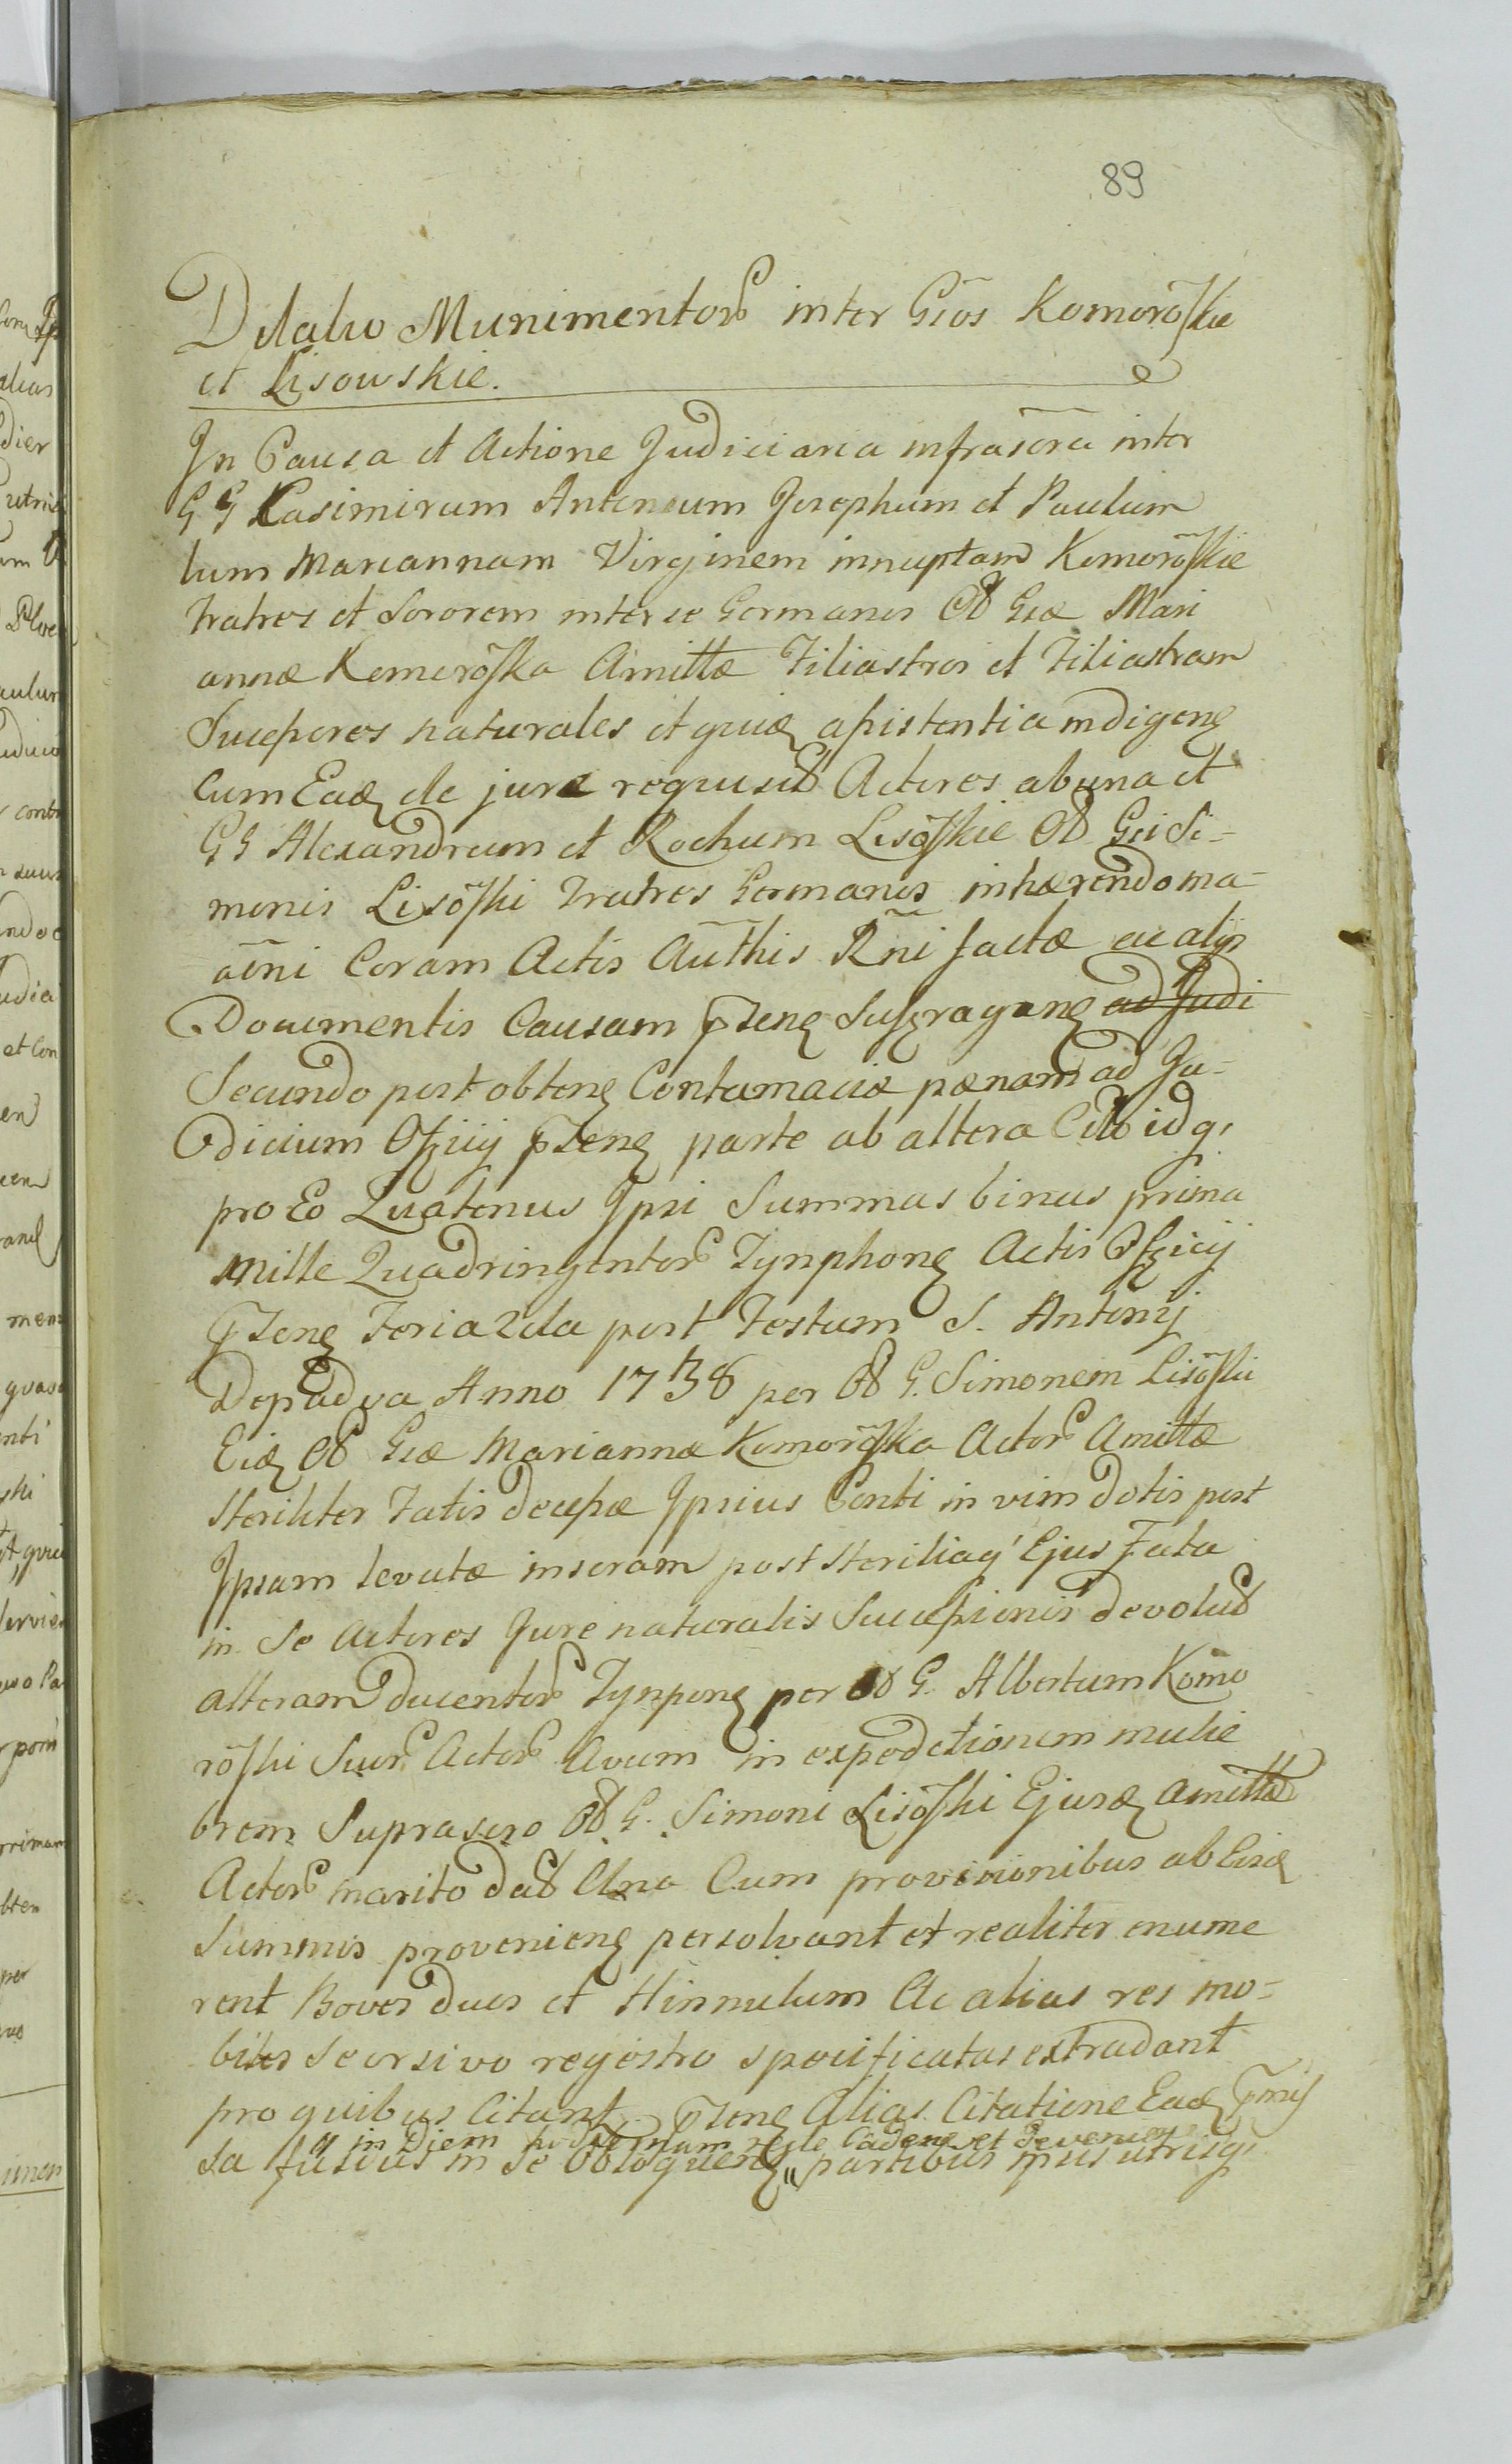 89
Dilatio Munimentor inter Gſos Komorõſkie
et Lisowskie.
In Causa et Actione Judiciaria infrascra inter
G G Casimirum Antonium Josephum et Paulum
tum Mariannam Virginem innuptam Komorõſkie
Fratres et Sororem inter se Germanos Ol Gsæ Mari
annæ Komorõſka Amittæ Filiastros et Filiastram
Succeſsores naturales et quiæ aſsistentia indigenę
cum Eadę de jure requisit Actores ab una et
G G Alexandrum et Rochum Lisõſkie Ol Gsi Si-
monis Lisõſki Fratres Germanos inhærendo ma-
ãoni Coram Actis Aũthis Rñi factæ ac alijs
Documentis Causam p̃senę Suffragανę ad Judi
Secundo post obtenę Contumaciæ pœnam ad Ju-
dicium Officij p̃senę parte ab altera Citõ idq,
pro Eo Quatenus Ipsi Summas binas prima
Mille Quadringentor Tynphonę Actis Officij
p̃senę Feria 2da post Festum S. Antonij
De padva Anno 1738 per Ol G. Simonem Lisõſki
Eidę Ol Gsæ Marianna Komorõſka Actor Amittæ
Steriliter Fatis deceſsæ Ipsius Conti in vim dotis post
Ipsam levatæ inscram post steriliaq' Ejus Fata
in Se Actores Jure naturalis Succeſsionis devolut
alteram ducentor Tynponę per Ol G. Albertum Komo
rõſki Suor Actor Avum in expedetionem mulie
brem Suprascro Ol G. Simoni Lisõſki Ejusdę Amittæ
Actor marito dat Una Cum provisionibus ab Eisdę
Summis provenienę persolvant et realiter enume
rent Boves duos et Hinnulum Ac alias res mo-
biles Seorsivo regestro specificatas extradant
pro quibus Citant p̃senę Alias Citatione Eadę p̃mis
in Diem hodiernum recte Cadenę et devenienę
sa fusius in se Obloquenę " partibus ipsis utrisq,